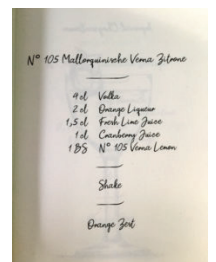 N° 105 Mallorquinische Verna Zitrone
4 cl Vodka
2 cl Orange Liqueur
1,5 cl Fresh Lime Juice
1 cl Cranberry Juice
1 BS N° 105 Verna Lemon
Shake
Orange Zest